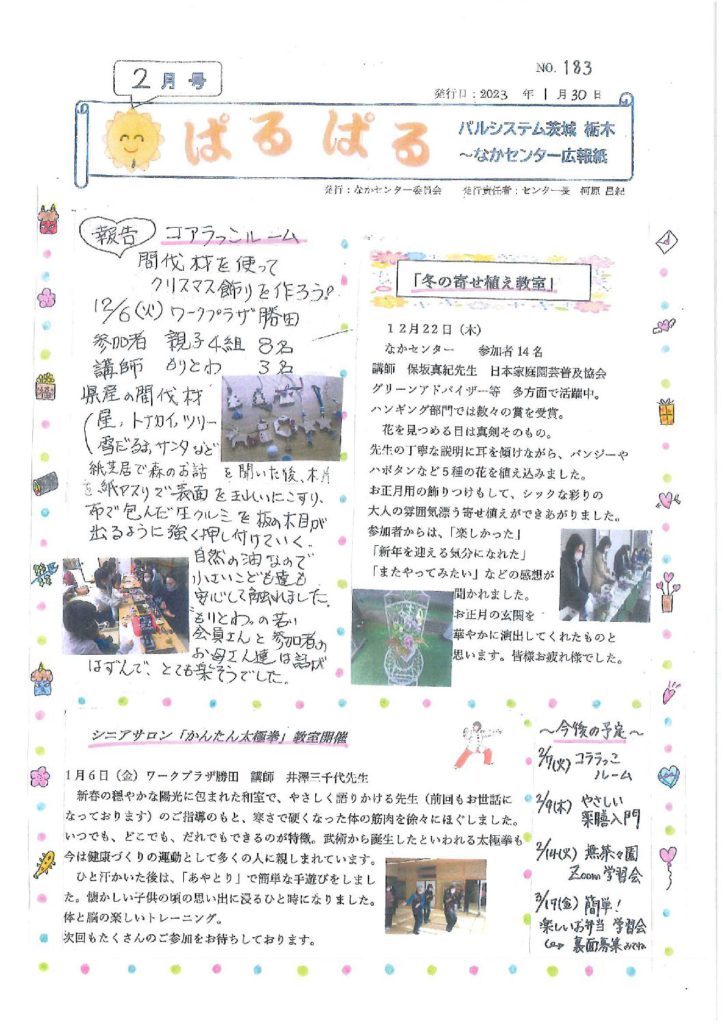 2月号
NO. 183
発行日：2023 年 1月30日
ぱるぱる
パルシステム茨城 栃木
～なかセンター広報紙
発行：なかセンター委員会 発行責任者：センター長 河原 昌紀
報告 コアラっこルーム
間伐材を使って
クリスマス飾りを作ろう♪
12/6(火) ワークプラザ勝田
参加者 親子4組 8名
講師 もりとわ 3名
県産の間伐材
(星、トナカイ、ツリー
雪だるま、サンタなど
紙芝居で森のお話 を聞いた後、木片
を紙ヤスリで表面をきれいにこすり、
布で包んだ生クルミを板の木目が
出るように強く押し付けていく。
自然の油なので
小さいこども達も
安心して触れました。
もりとわ。の若い
会員さんと参加者の
お母さん達は話が
はずんで、とても楽そうでした。
「冬の寄せ植え教室」
12月22日（木）
なかセンター 参加者14名
講師 保坂真紀先生 日本家庭園芸普及協会
グリーンアドバイザー等 多方面で活躍中。
ハンギング部門では数々の賞を受賞。
花を見つめる目は真剣そのもの。
先生の丁寧な説明に耳を傾けながら、パンジーや
ハボタンなど5種の花を植え込みました。
お正月用の飾りつけもして、シックな彩りの
大人の雰囲気漂う寄せ植えができあがりました。
参加者からは、「楽しかった」
「新年を迎える気分になれた」
「またやってみたい」などの感想が
聞かれました。
お正月の玄関を
華やかに演出してくれたものと
思います。皆様お疲れ様でした。
シニアサロン「かんたん太極拳」教室開催
1月6日（金）ワークプラザ勝田 講師 井澤三千代先生
新春の穏やかな陽光に包まれた和室で、やさしく語りかける先生（前回もお世話に
なっております）のご指導のもと、寒さで硬くなった体の筋肉を徐々にほぐしました。
いつでも、どこでも、だれでもできるのが特徴。武術から誕生したといわれる太極拳も
今は健康づくりの運動として多くの人に親しまれています。
ひと汗かいた後は、「あやとり」で簡単な手遊びをしまし
た。懐かしい子供の頃の思い出に浸るひと時になりました。
体と脳の楽しいトレーニング。
次回もたくさんのご参加をお待ちしております。
～今後の予定～
2/7(火) コアラっこ
ルーム
2/9(木) やさしい
薬膳入門
2/14(火) 無茶々園
Zoom学習会
3/17(金) 簡単！
楽しいお弁当 学習会
裏面募集みてね